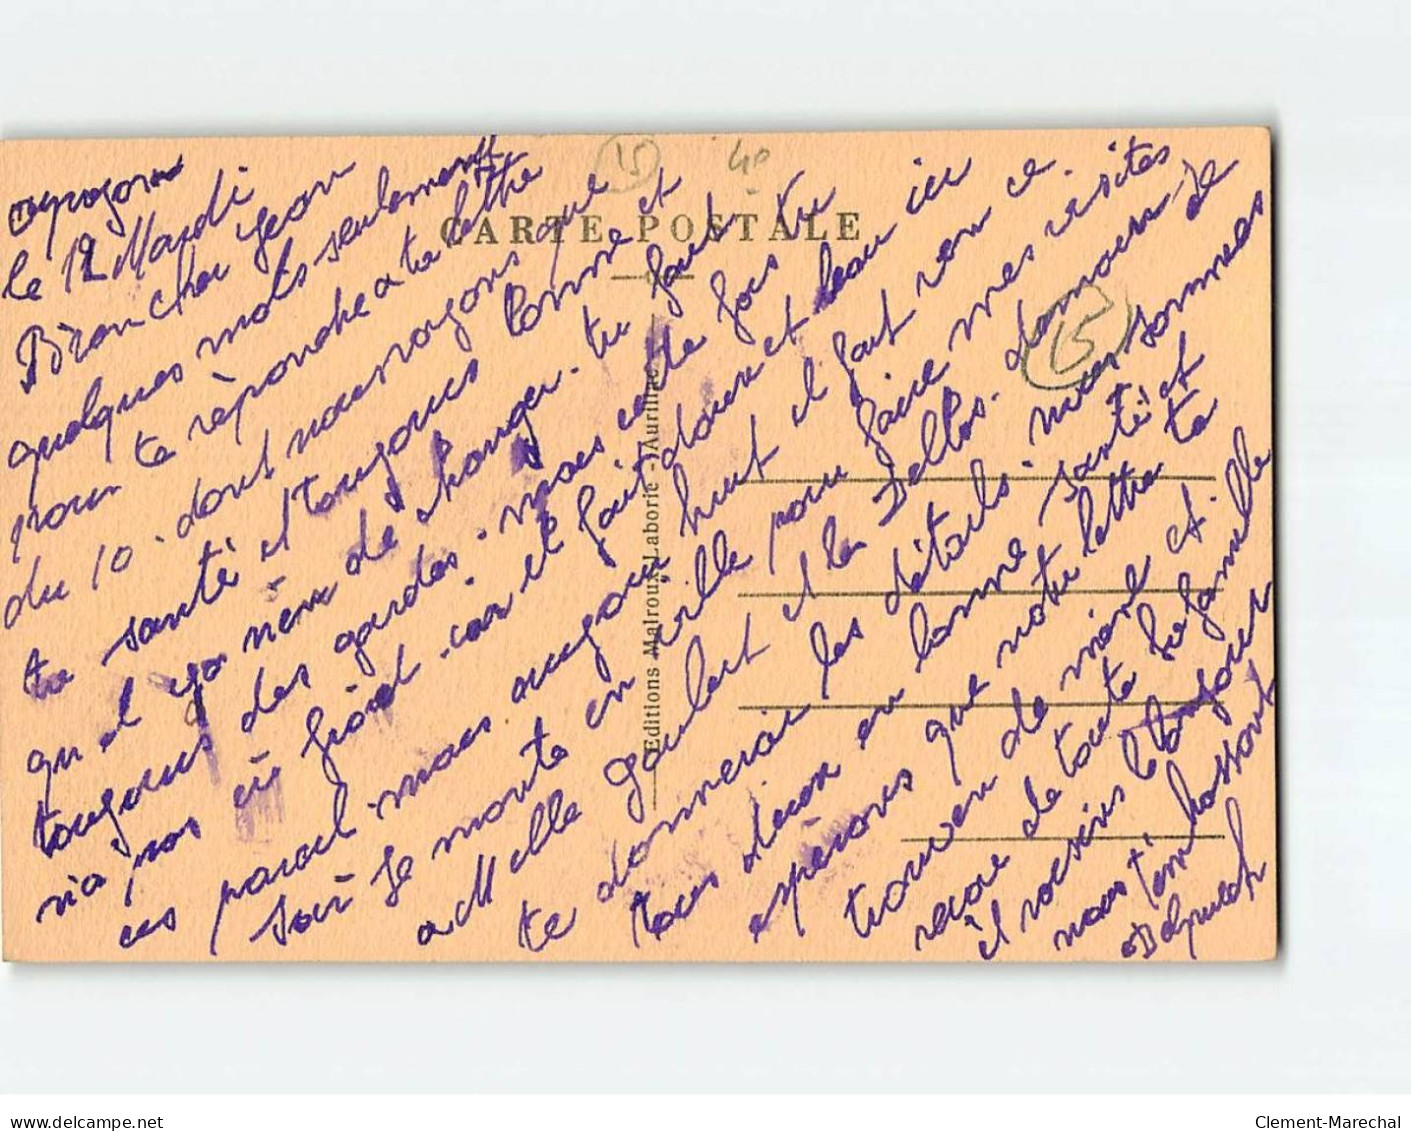 le 12 Mardi
Bien cher Jean
quelques mots seulement
pour te répondre a ta lettre
du 10. dont nous voyons que
ta santé et toujours bonne et
qu'el ya rien de changer. tu fait
toujours des gardes. mais cette fois tu
n'a pas eu froid. car el fait doux et beau ici
ces pareil. mais aujourd huit il fait ron ce
soir je monte en ville pour faire mes visites
a Melle Joubert et la Delbos. demain je
te donnerai les détails. nous sommes
tous deux en bonne santé et
espérons que notre lettre te
trouven de mème et
recoie de toute la famille
il nocives bonjour
nous t'embrassont
Delpuech
CARTE POSTALE
Editions Malroux-Laborie - Aurillac
15
40
15
delcampe.net
Clement-Marechal